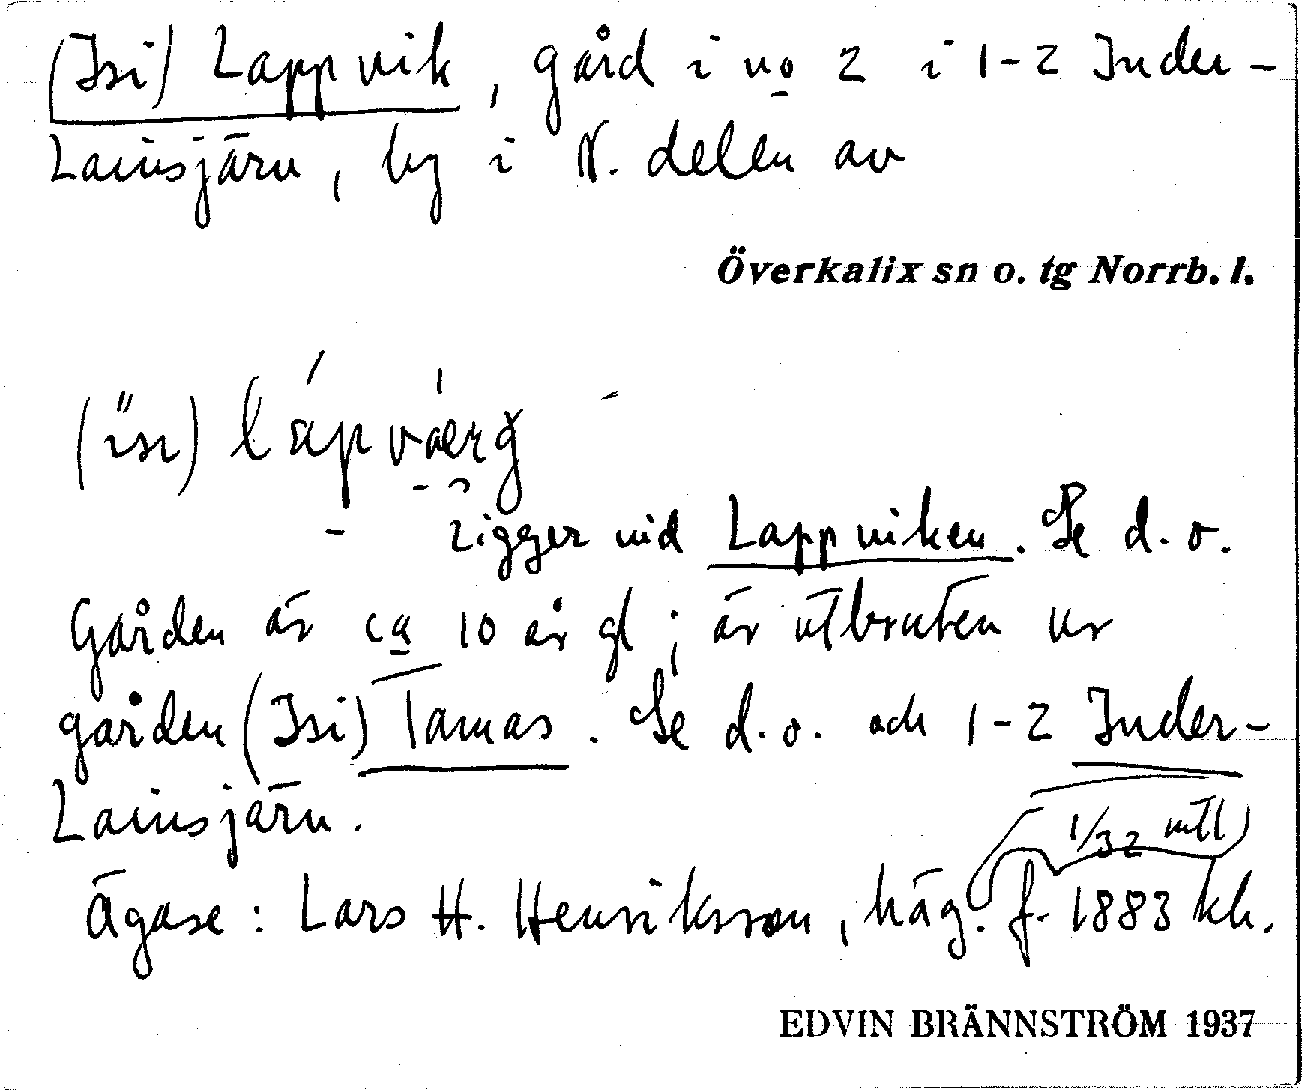 (Isi) Lappvik, gård i no 2 i 1-2 Inder-
Lainsjärv, by i N. delen av
Överkalix sn o. tg Norrb. l.
(ısı)
Ligger vid Lappviken. Se d.o.
Gården är ca 10 år gl; är utbruten ur
gården (Isi) Tomas. Se d.o. och 1-2 Inder-
Lainsjärv.
1/32 mtl
Ägare: Lars H. Henriksson, häg. f. 1883 kh.
EDVIN BRÄNNSTRÖM 1937